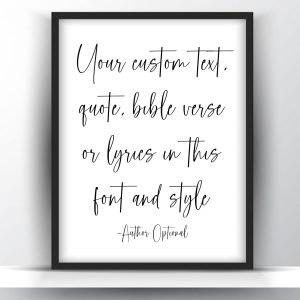 Your custom text,
quote, bible verse
or lyrics in this
font and style
-Author Optional